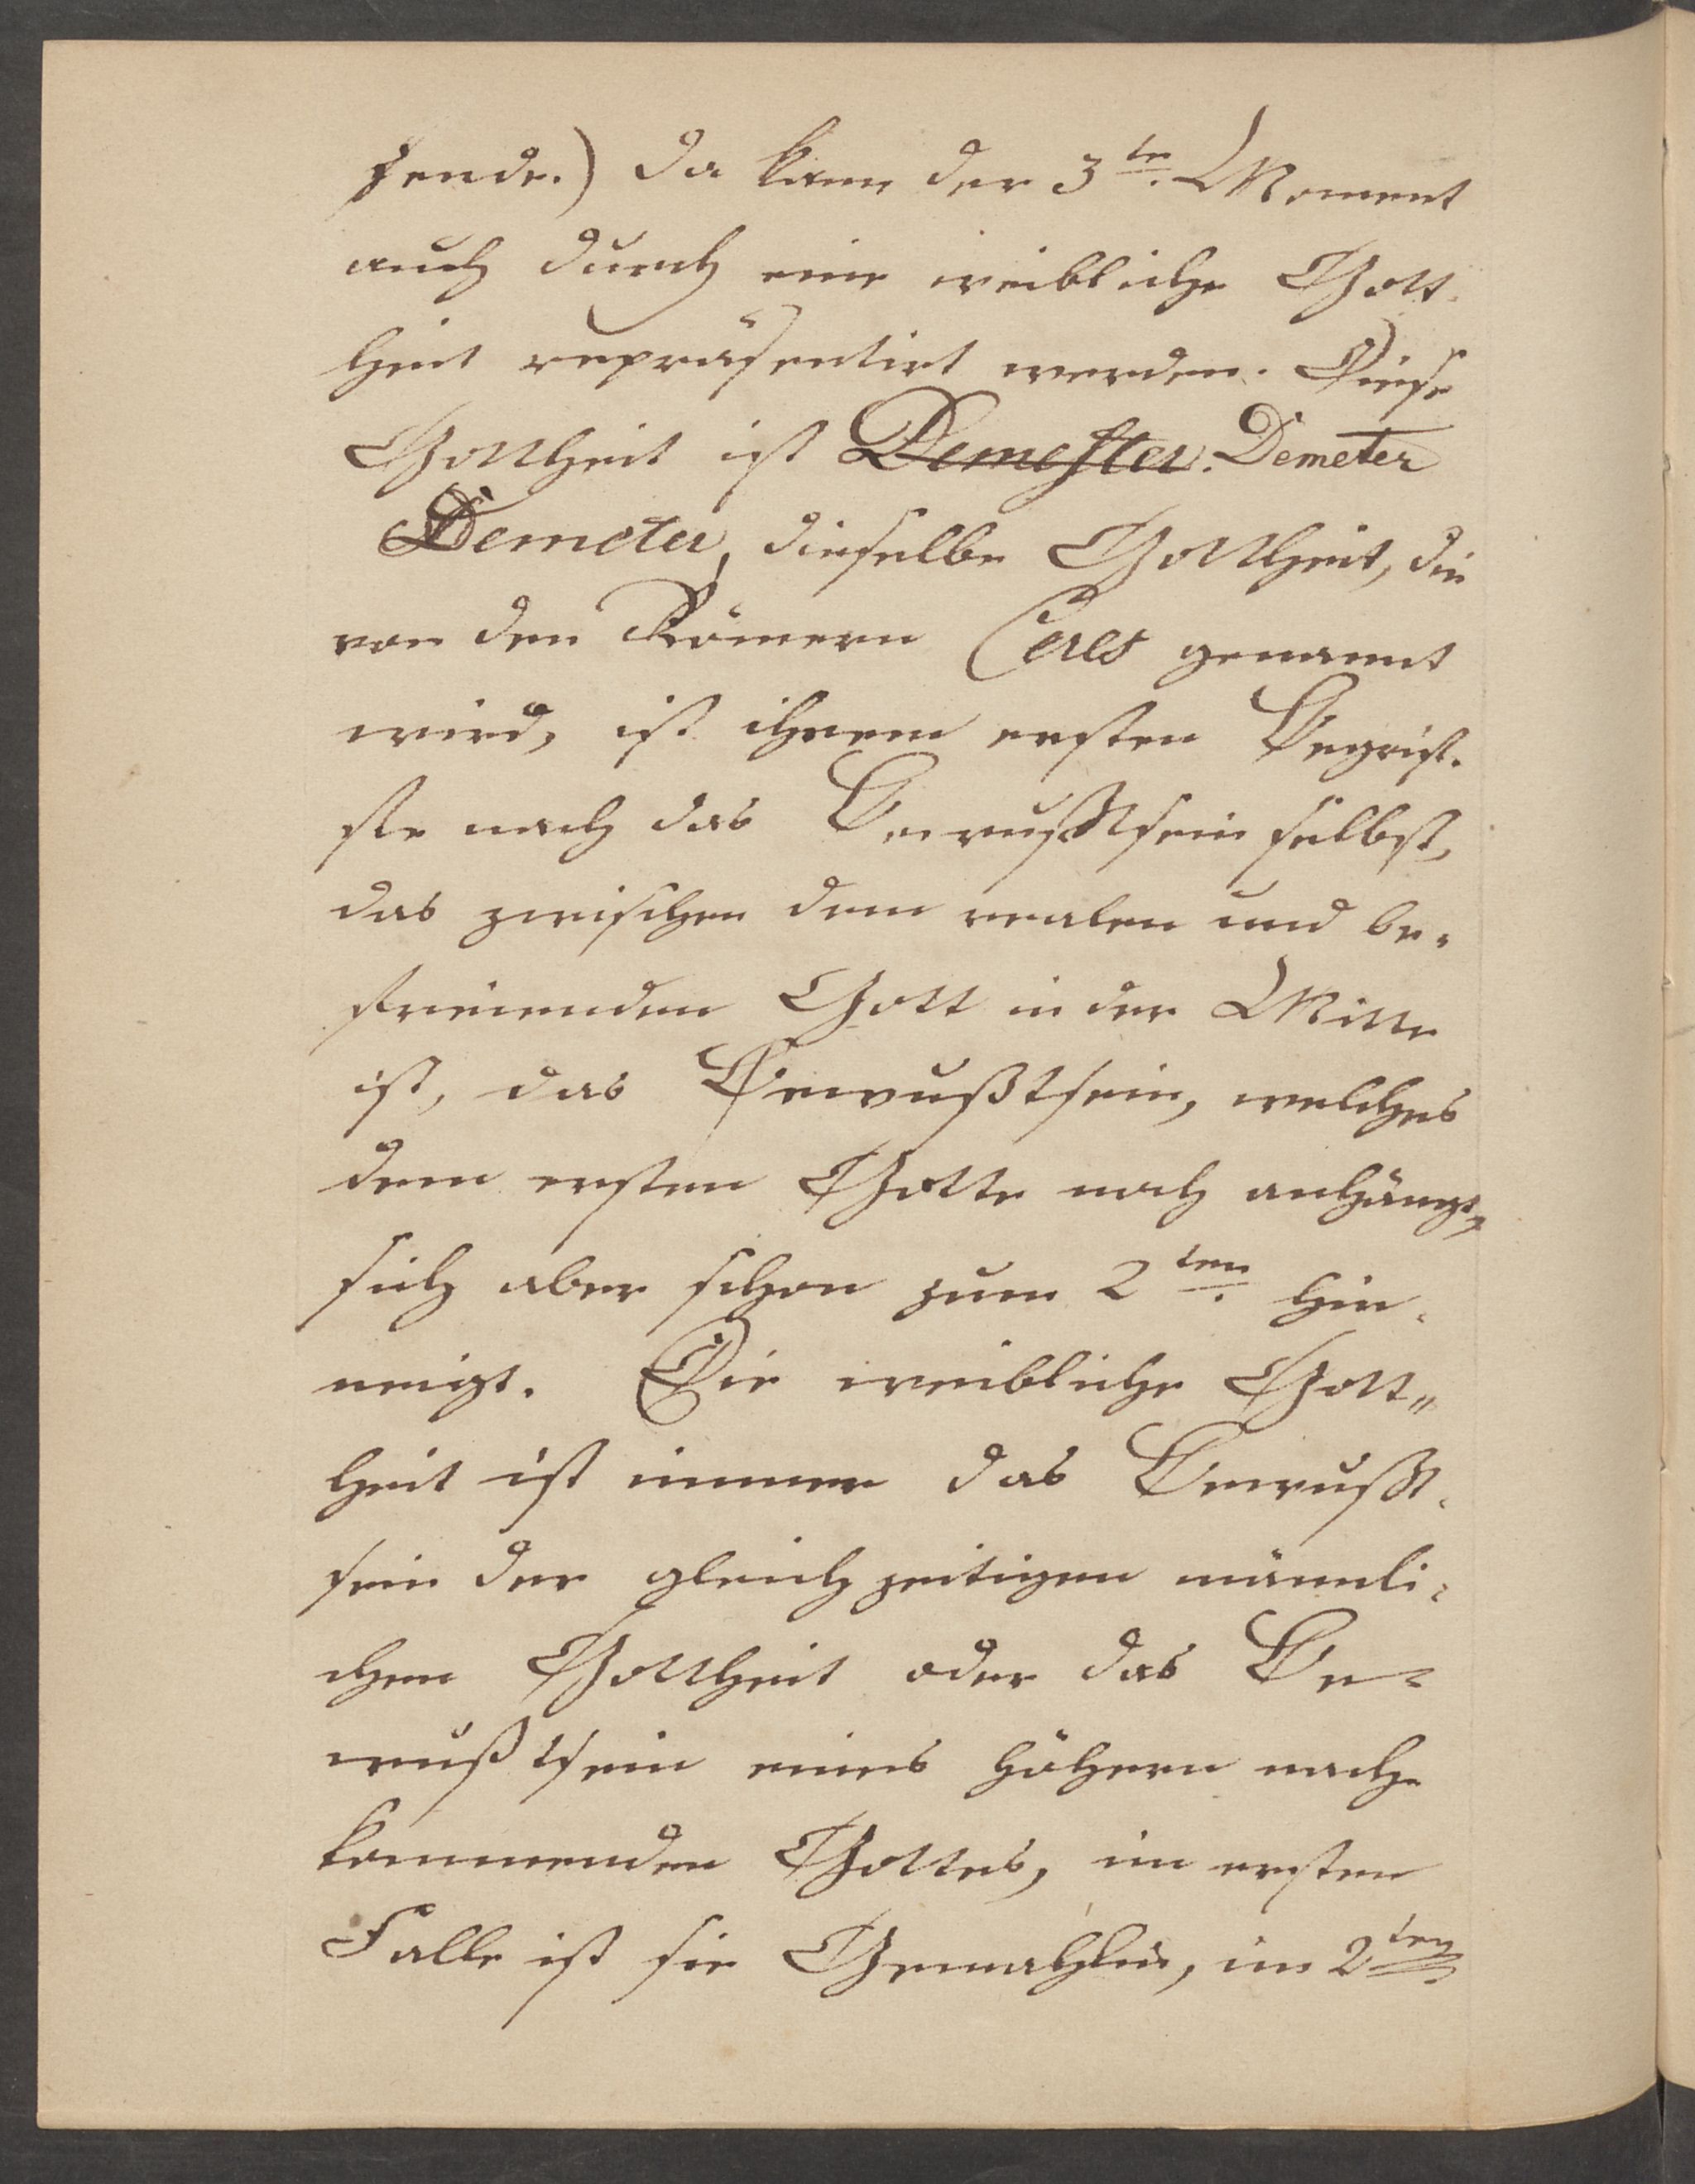 zende.) Da kann der 3te. Moment
auch durch eine weibliche Gott-
heit repräsentirt werden. Diese
Gottheit ist Demester. Demeter
Demeter, dieselbe Gottheit, die
von den Römern Ceres genannt
wird, ist ihrem ersten Begrif-
fe nach das Bewußtsein selbst,
das zwischen dem realen und be-
freienden Gott in der Mitte
ist, das Bewußtsein, welches
dem ersten Gotte noch anhängt,
sich aber schon zum 2ten. hin-
neigt. Die weibliche Gott-
heit ist immer das Bewußt-
sein der gleichzeitigen männli-
chen Gottheit oder das Be-
wußtsein eines höhern nach-
kommenden Gottes, im ersten
Falle ist sie Gemahlin, im 2ten